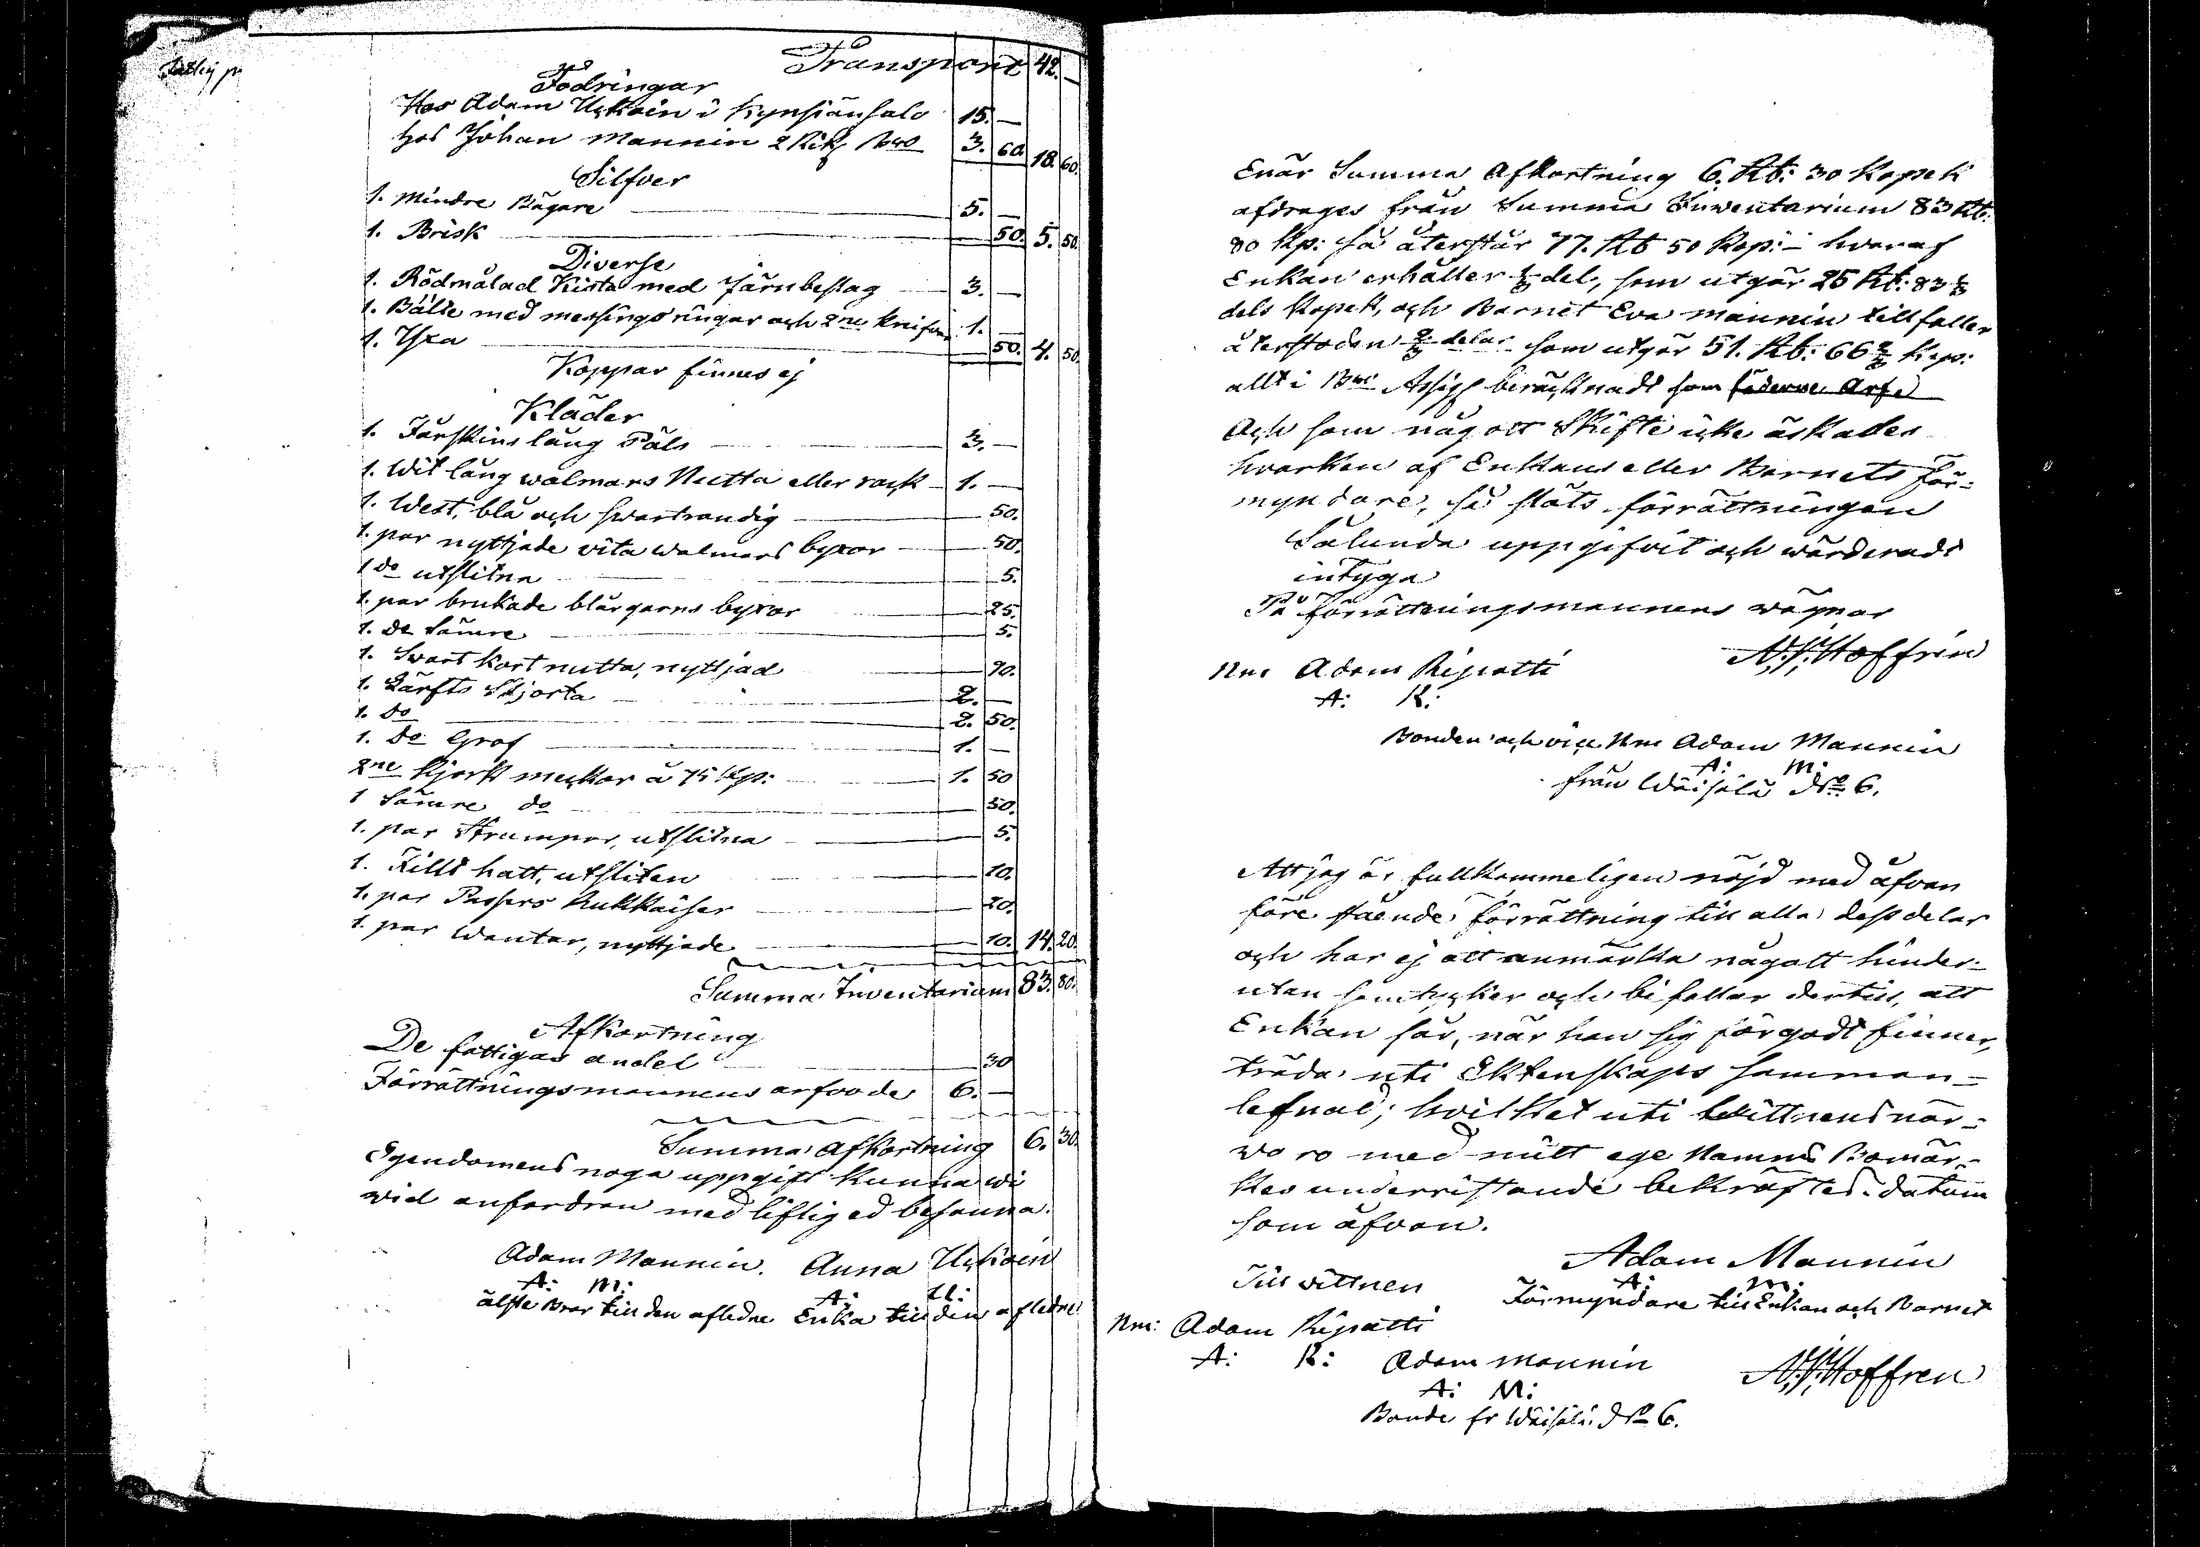 Transport 42. —
Fodringar
Hos Adam Uskoin i Kynsiänsalo 15. —
hos Johan Mannin 2 Rub 3. 60. 18. 60.
Silfver
1. Mindre Bägare 5. —
1. Brisk 50. 5. 50.
Diverse
1. Rödmålad Kista med Järnbeslag 3. —
1. Bälte med messings ringar och 2ne Knifvar 1. —
1. Yxa 50. 4. 50.
Koppar finnes ej
Kläder
1. Fårskins lång Päls 3. —
1. Wit lång walmars Nutta eller rock 1. —
1. West, blå och swartrandig 50.
1. par nyttjade vita walmars byxor 50.
1 do utslitna 5.
1. par brukade blårgarns byxor 25.
1. do sämre 5.
1. Swart kort nutta, nyttjad 90.
1. Lärfts Skjorta 2. —
1. do 2. 50.
1. do Grof 1. —
2ne Skjorst meckor à 75 Kp: 1. 50
1 sämre do 50.
1. par Strumpor, utslitna 5.
1. Filt hatt, utsliten 10.
1. par Passers Kukkaiser 20.
1. par Wantar, nyttjade 10. 14. 20.
Summa Inventarium 83. 80.
Afkortning
De fattigas andel 30
Förrättningsmannens arfvode 6. —
Summa afkortning 6. 30.
Egendomens noga uppgift kunna wi
wid anfordran med liflig ed besanna.
Adam Mannin. Anna Uskoin
A: M: A: U:
älste Bror till den afledne Enka till den afledne
Enär Summa Afkortning 6. Rb: 30 Kopek
afdrages från Summa Inwentarium 83 Rb:
80 Kp: så återstår 77. Rb 50 Kop: hvaraf
Enkan erhåller 1/3 del, som utgör 25 Rb: 83 1/3
dels Kopek, och Barnet Eva Mannin tillfaller
återstoden 2/3 delar som utgör 51. Rb: 66 2/3 Kop:
allt i Bco Assign beräcknadt som föderne Arf
Och som något Skifte icke äskades
hvarken af Enkans eller Barnets För-
myndare, så slöts förrättningen
Sålunda uppgifvit och wärderadt
intyga
På förrättningsmannens wägnar
N. J. Hoffrén
Nm: Adam Ripatti
A: R:
Bonden och vice Nm: Adam Mannin
A: M:
från Wäisälä No 6.
Att jag är fullkommeligen nöjd med åfvan
före stående förrättning till alla dess delar
och har ej att anmärka någott hinder
utan samtycker och bifallar dertill, att
Enkan får, när hon sig förgodt finner,
träda uti Ektenskaps samman-
lefnad; hvilket uti Wittnens när-
waro med mitt ege Namns Bomär-
kes underristande bekräftes. datum
som åfvan.
Adam Mannin
A: M:
Till wittnen Förmyndare till Enkan och Barnet
Nm: Adam Ripatti
A: R: Adam Mannin N. J. Hoffren
A: M:
Bonde fr Wäisälä No 6.